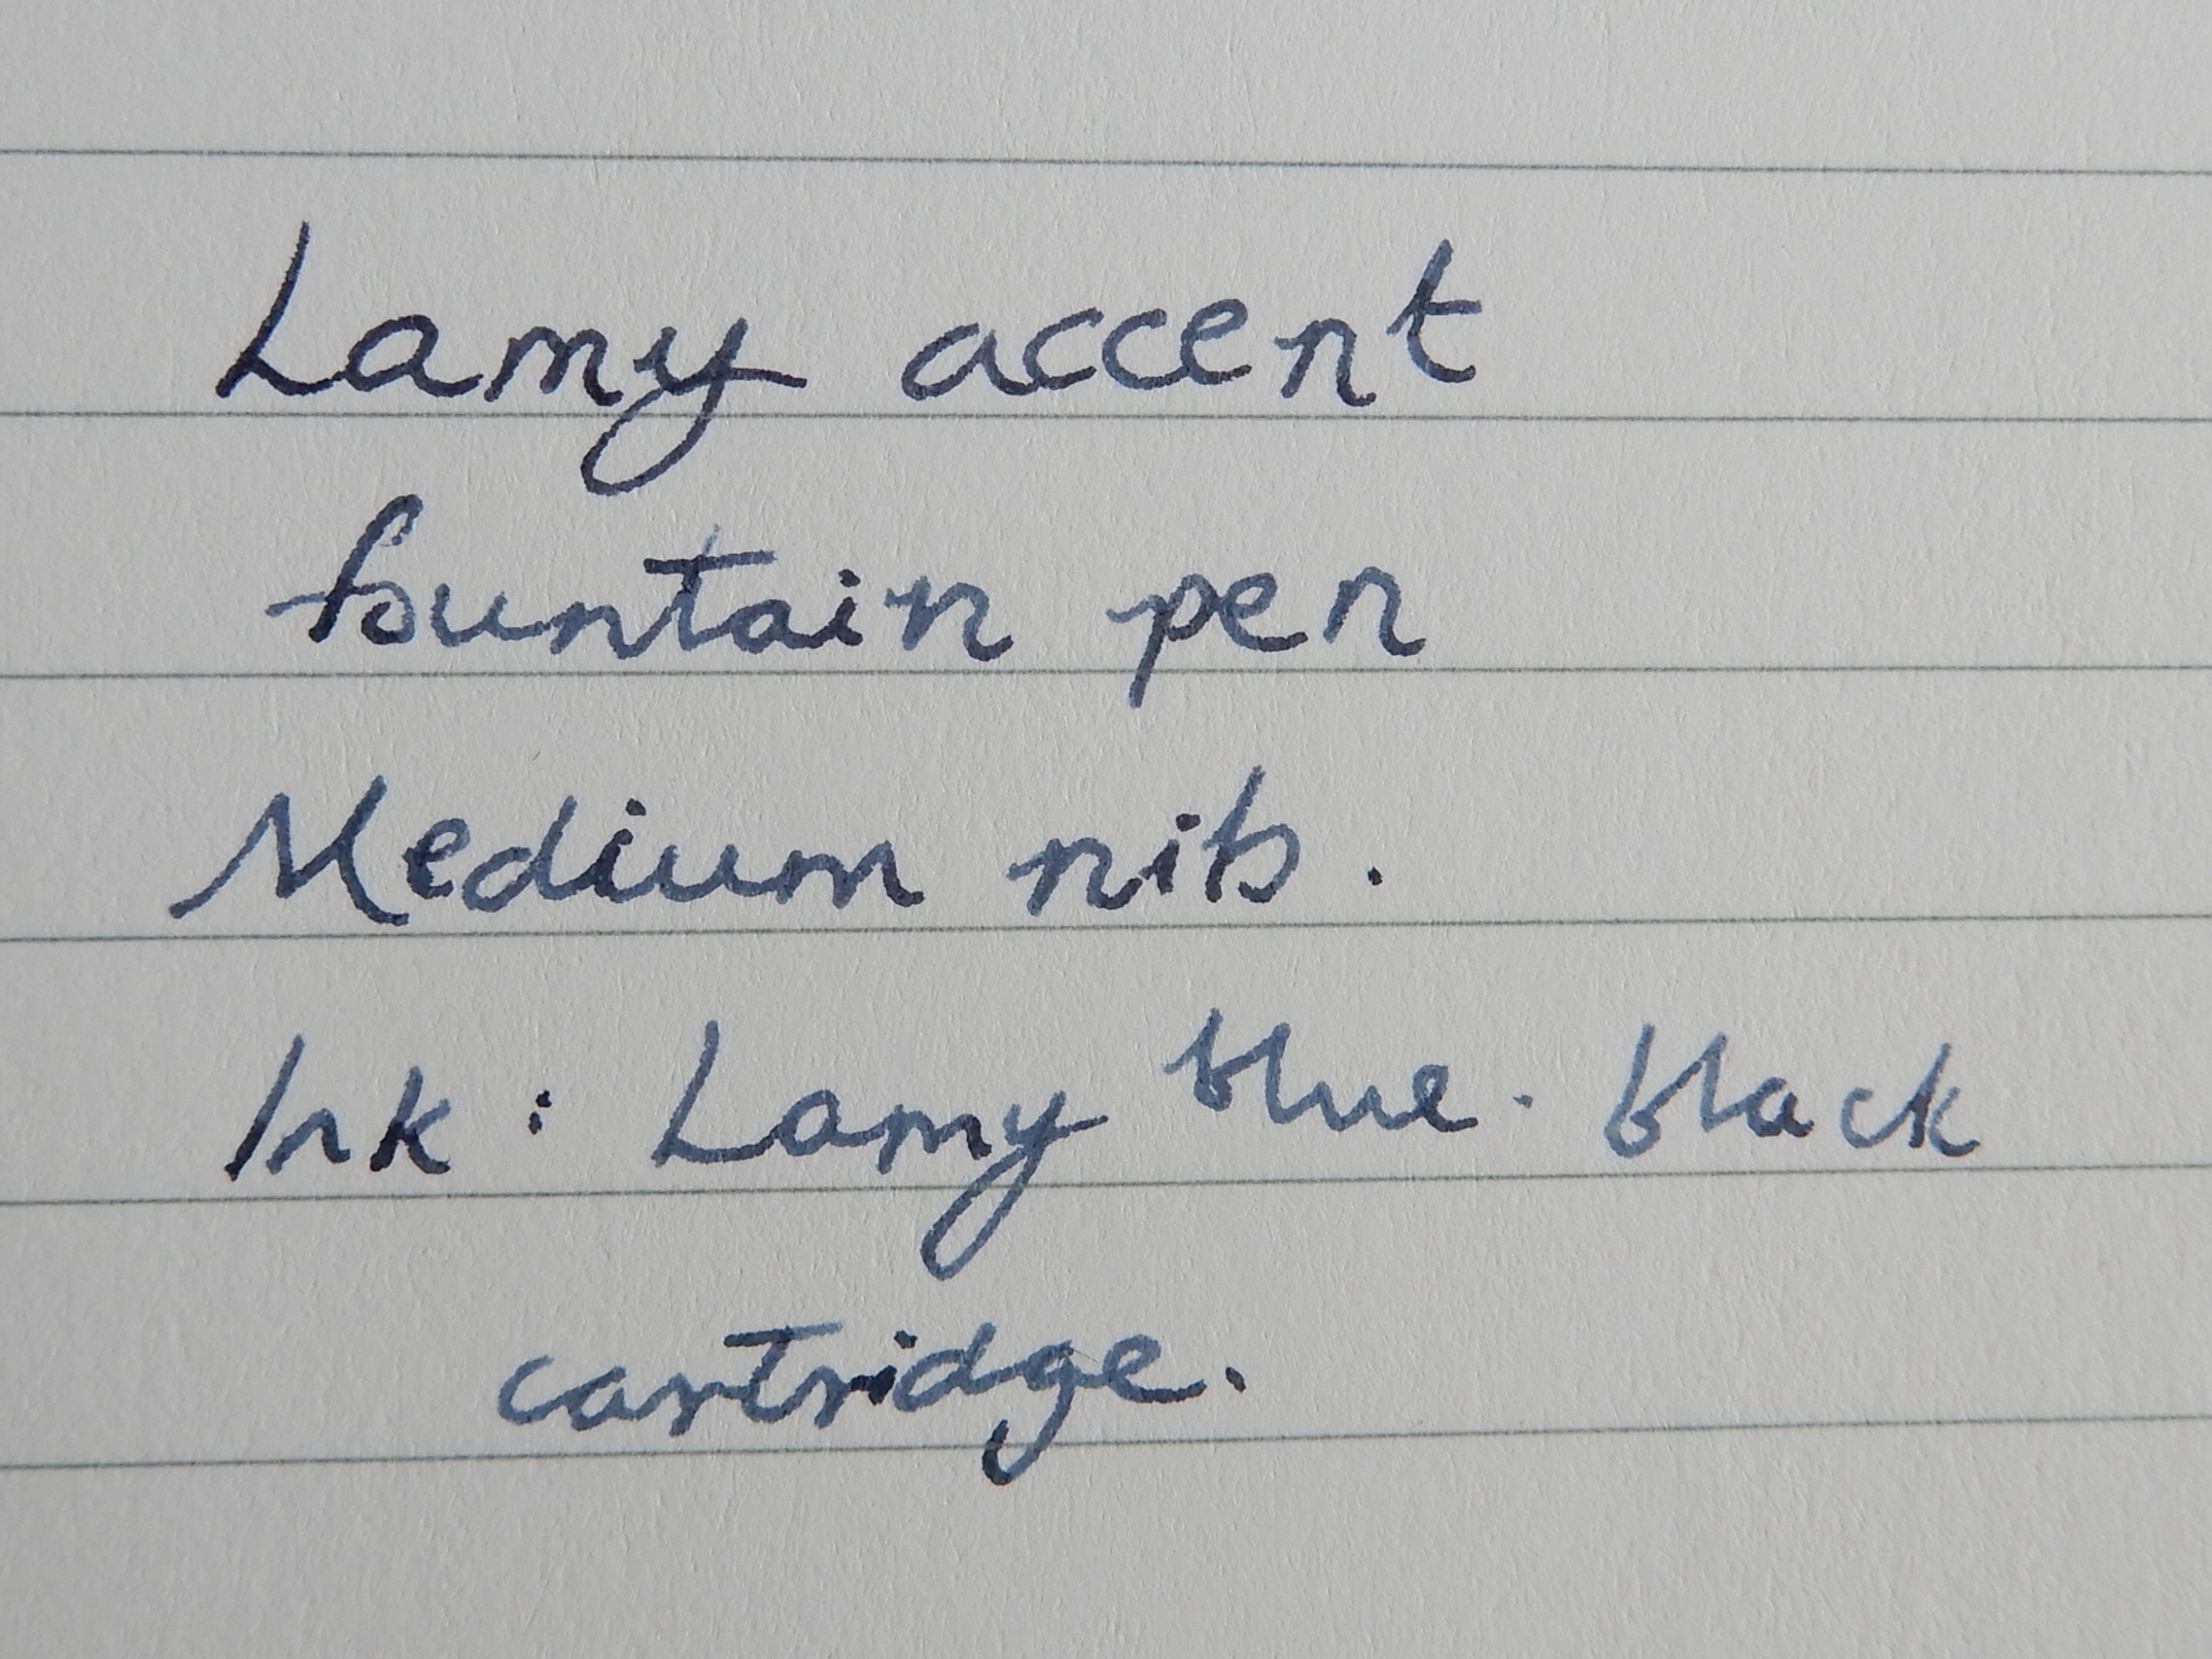 Lamy accent
fountain pen
Medium nib.
Ink: Lamy blue-black
cartridge.